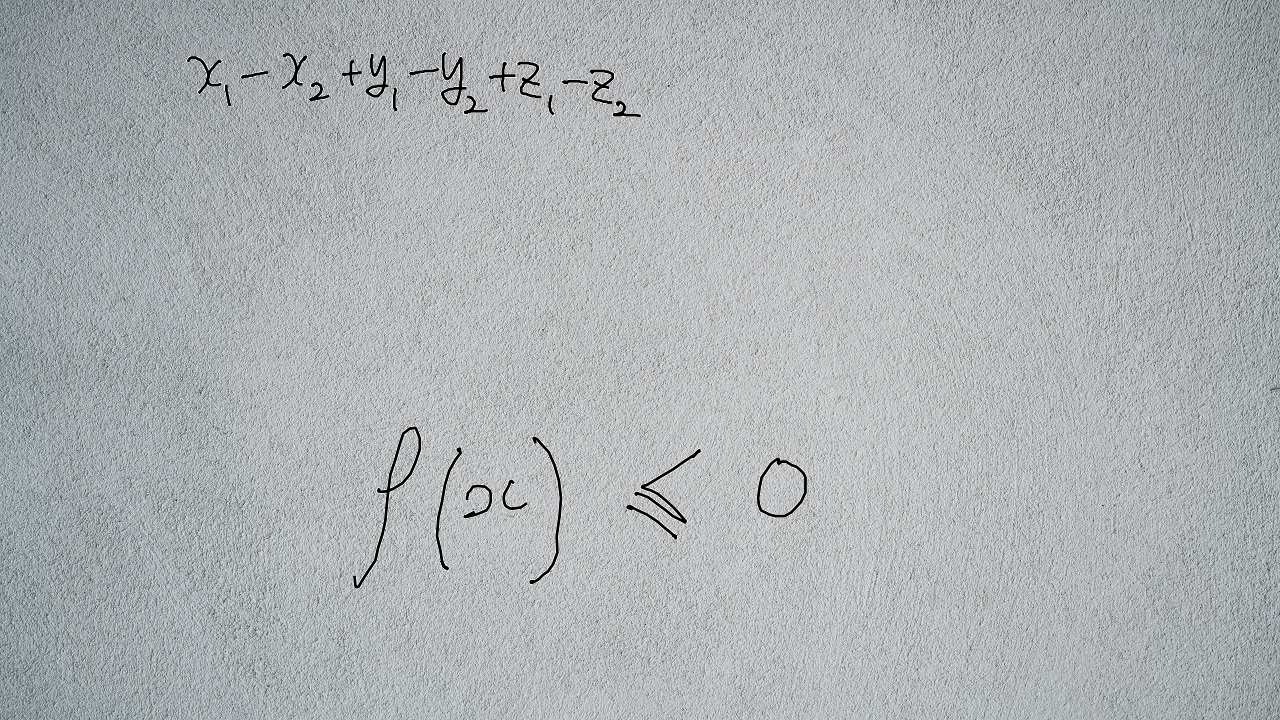 x₁ − x₂ + y₁ − y₂ + z₁ − z₂
f(x) ⩽ 0